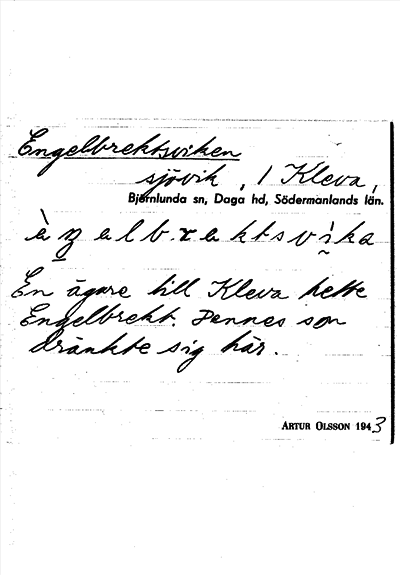 Engelbrektsviken
sjövik, 1 Kleva,
Björnlunda sn, Daga hd, Södermanlands län.
En ägare till Kleva hette
Engelbrekt. Dennes son
dränkte sig här.
ARTUR OLSSON 1943